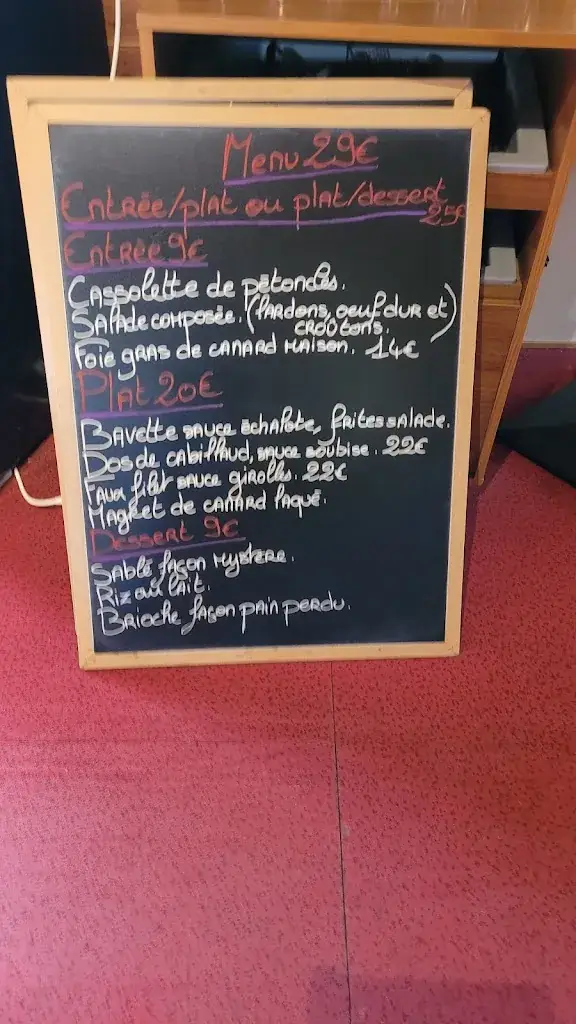 Menu 29€
Entrée/plat ou plat/dessert
25€
Entrée 9€
Cassolette de pétoncles.
Salade composée. (lardons, oeuf dur et)
croûtons.
Foie gras de canard maison. 14€
Plat 20€
Bavette sauce échalote, frites salade.
Dos de cabillaud, sauce soubise. 22€
Faux filet sauce girolles. 22€
Magret de canard laqué.
Dessert 9€
Sablé façon mystere.
Riz au lait.
Brioche façon pain perdu.